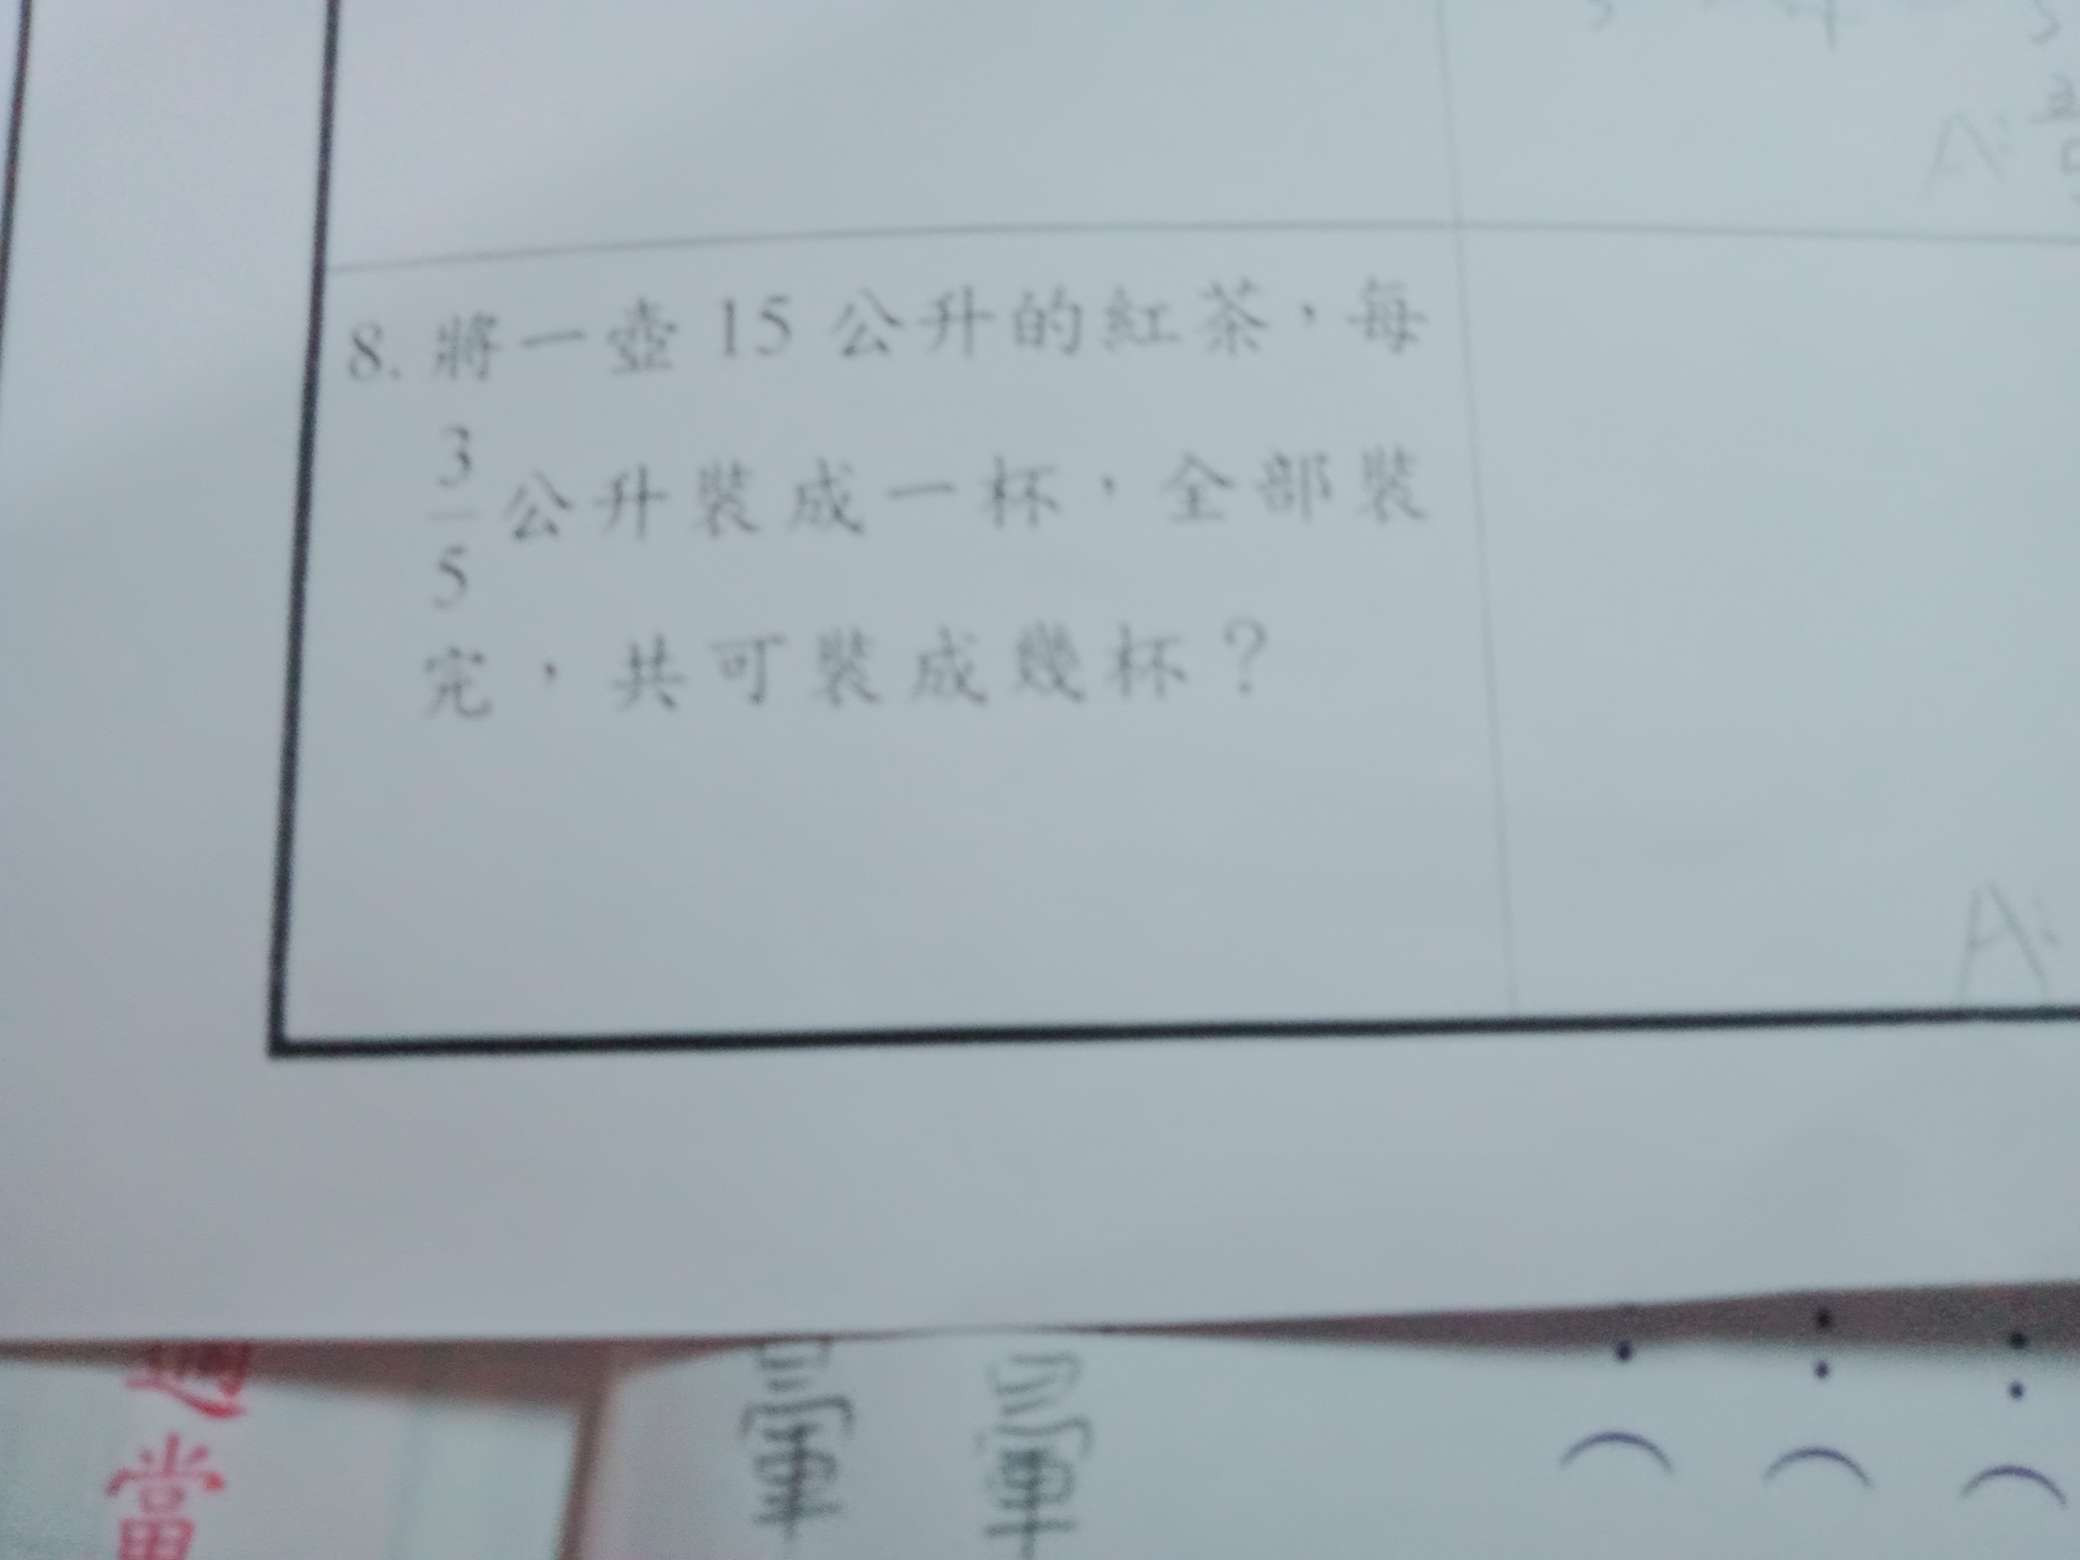 A:
8. 將一壺 15 公升的紅茶，每
3/5 公升裝成一杯，全部裝
完，共可裝成幾杯？
A:
適當